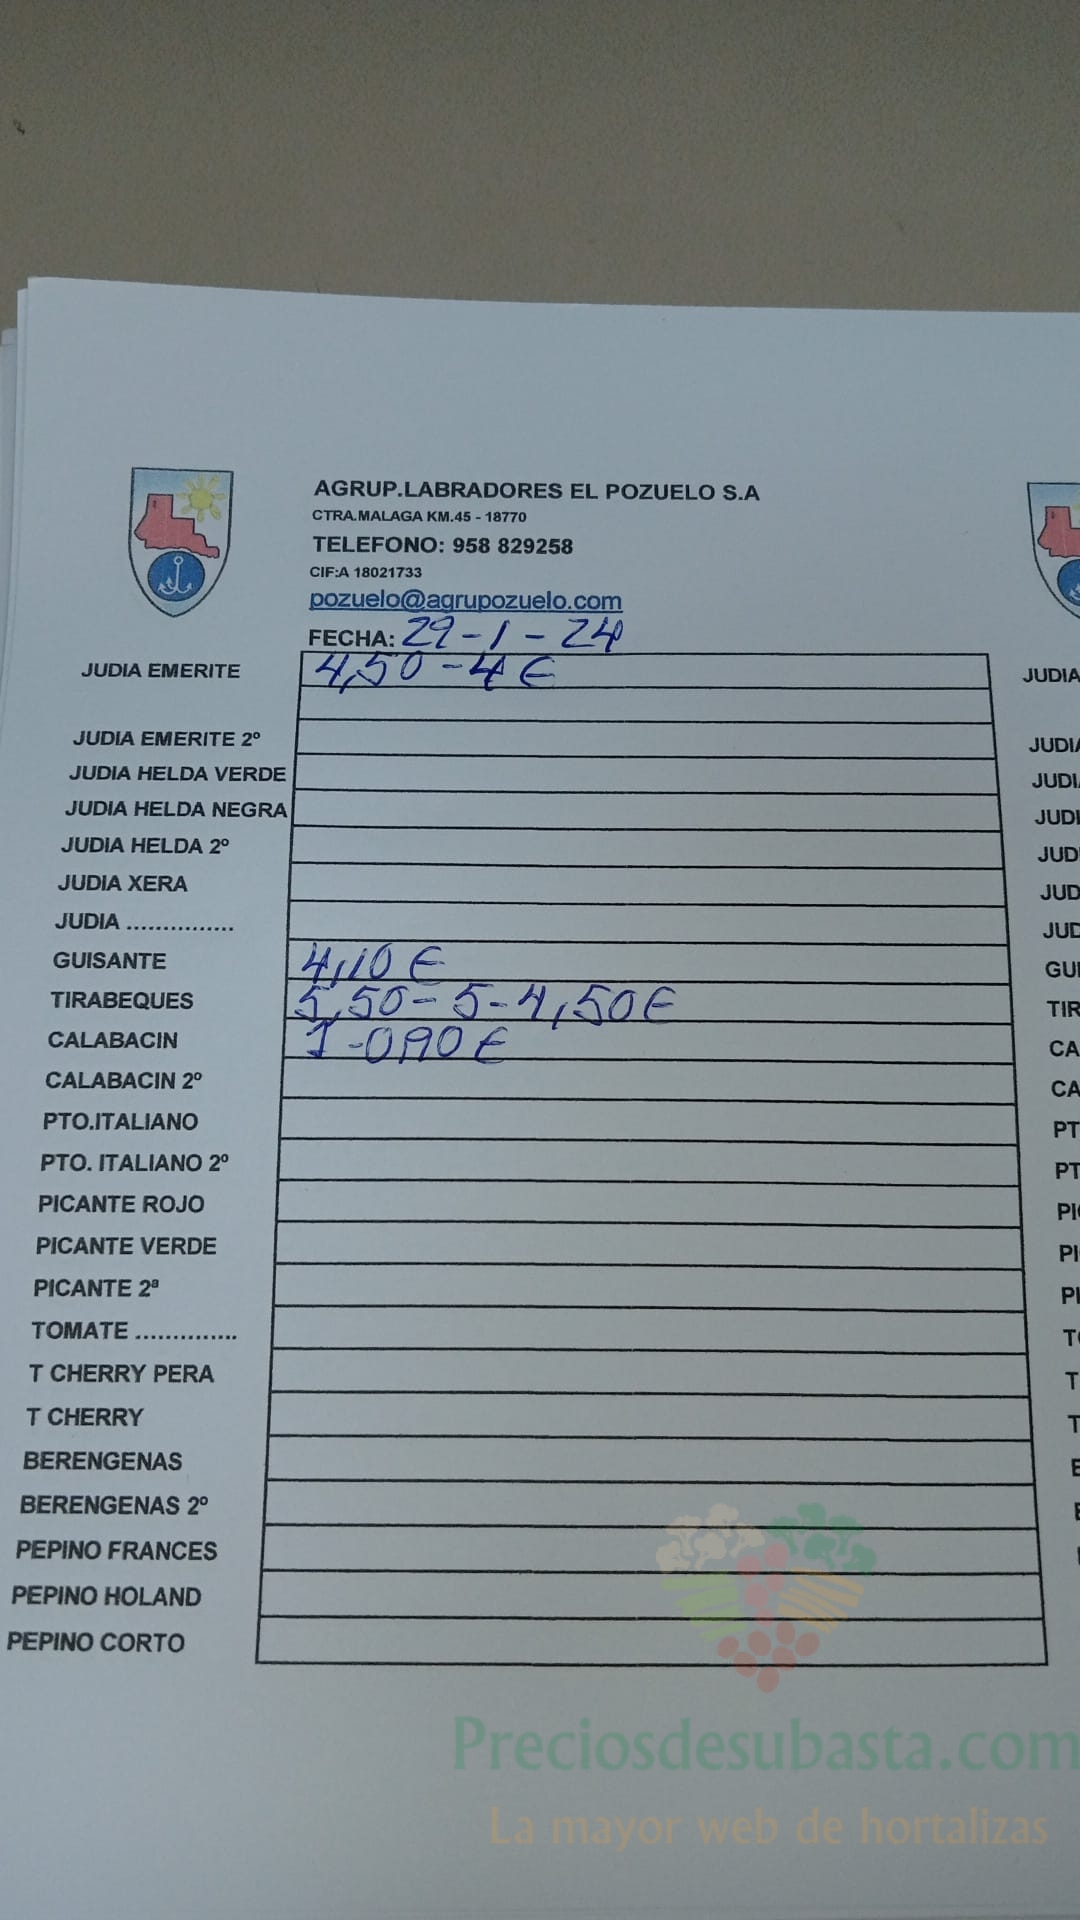 AGRUP.LABRADORES EL POZUELO S.A
CTRA.MALAGA KM.45 - 18770
TELEFONO: 958 829258
CIF:A 18021733
pozuelo@agrupozuelo.com
FECHA: 29-1-24
JUDIA EMERITE 4,50-4€
JUDIA EMERITE 2º
JUDIA HELDA VERDE
JUDIA HELDA NEGRA
JUDIA HELDA 2º
JUDIA XERA
JUDIA ...............
GUISANTE 4,10€
TIRABEQUES 5,50-5-4,50€
CALABACIN 1-0,90€
CALABACIN 2º
PTO.ITALIANO
PTO. ITALIANO 2º
PICANTE ROJO
PICANTE VERDE
PICANTE 2ª
TOMATE ..............
T CHERRY PERA
T CHERRY
BERENGENAS
BERENGENAS 2º
PEPINO FRANCES
PEPINO HOLAND
PEPINO CORTO
JUDIA
Preciosdesubasta.com
La mayor web de hortalizas